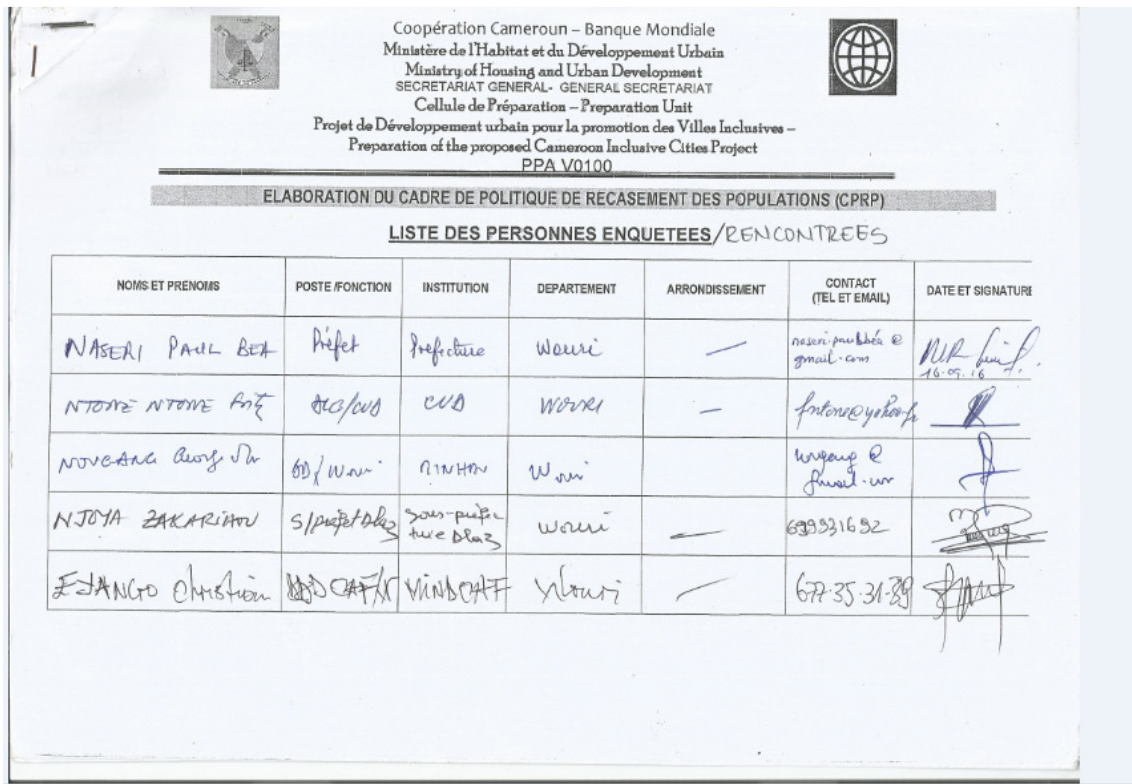 Coopération Cameroun – Banque Mondiale
Ministère de l'Habitat et du Développement Urbain
Ministry of Housing and Urban Development
SECRETARIAT GENERAL- GENERAL SECRETARIAT
Cellule de Préparation – Preparation Unit
Projet de Développement urbain pour la promotion des Villes Inclusives –
Preparation of the proposed Cameroon Inclusive Cities Project
PPA V0100
ELABORATION DU CADRE DE POLITIQUE DE RECASEMENT DES POPULATIONS (CPRP)
LISTE DES PERSONNES ENQUETEES/RENCONTREES
NOMS ET PRENOMS POSTE /FONCTION INSTITUTION DEPARTEMENT ARRONDISSEMENT CONTACT (TEL ET EMAIL) DATE ET SIGNATURE
NASERI PAUL BEA Préfet Préfecture Wouri — naseri.paulbéa @
gmail.com
16.09.16
NTONE NTONE CUD WOURI — fntone@yahoo.fr
Wouri
NJOYA ZAKARIAOU S/préfet Dla3 Sous-préfec
ture Dla3 Wouri — 699931692
EJANGO Christian MINDCAF Wouri — 677-35-31-89